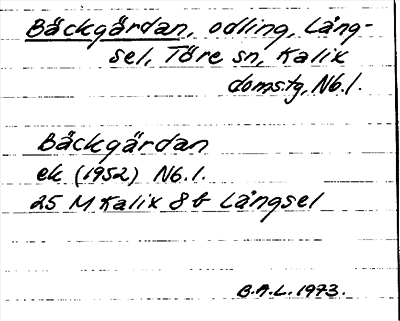 Bäckgärdan, odling, Lång-
sel, Töre sn, Kalix
domstg, Nb. l.
Bäckgärdan
ek (1952) Nb. l.
25 M Kalix 8 b Långsel
B.A.L. 1973.